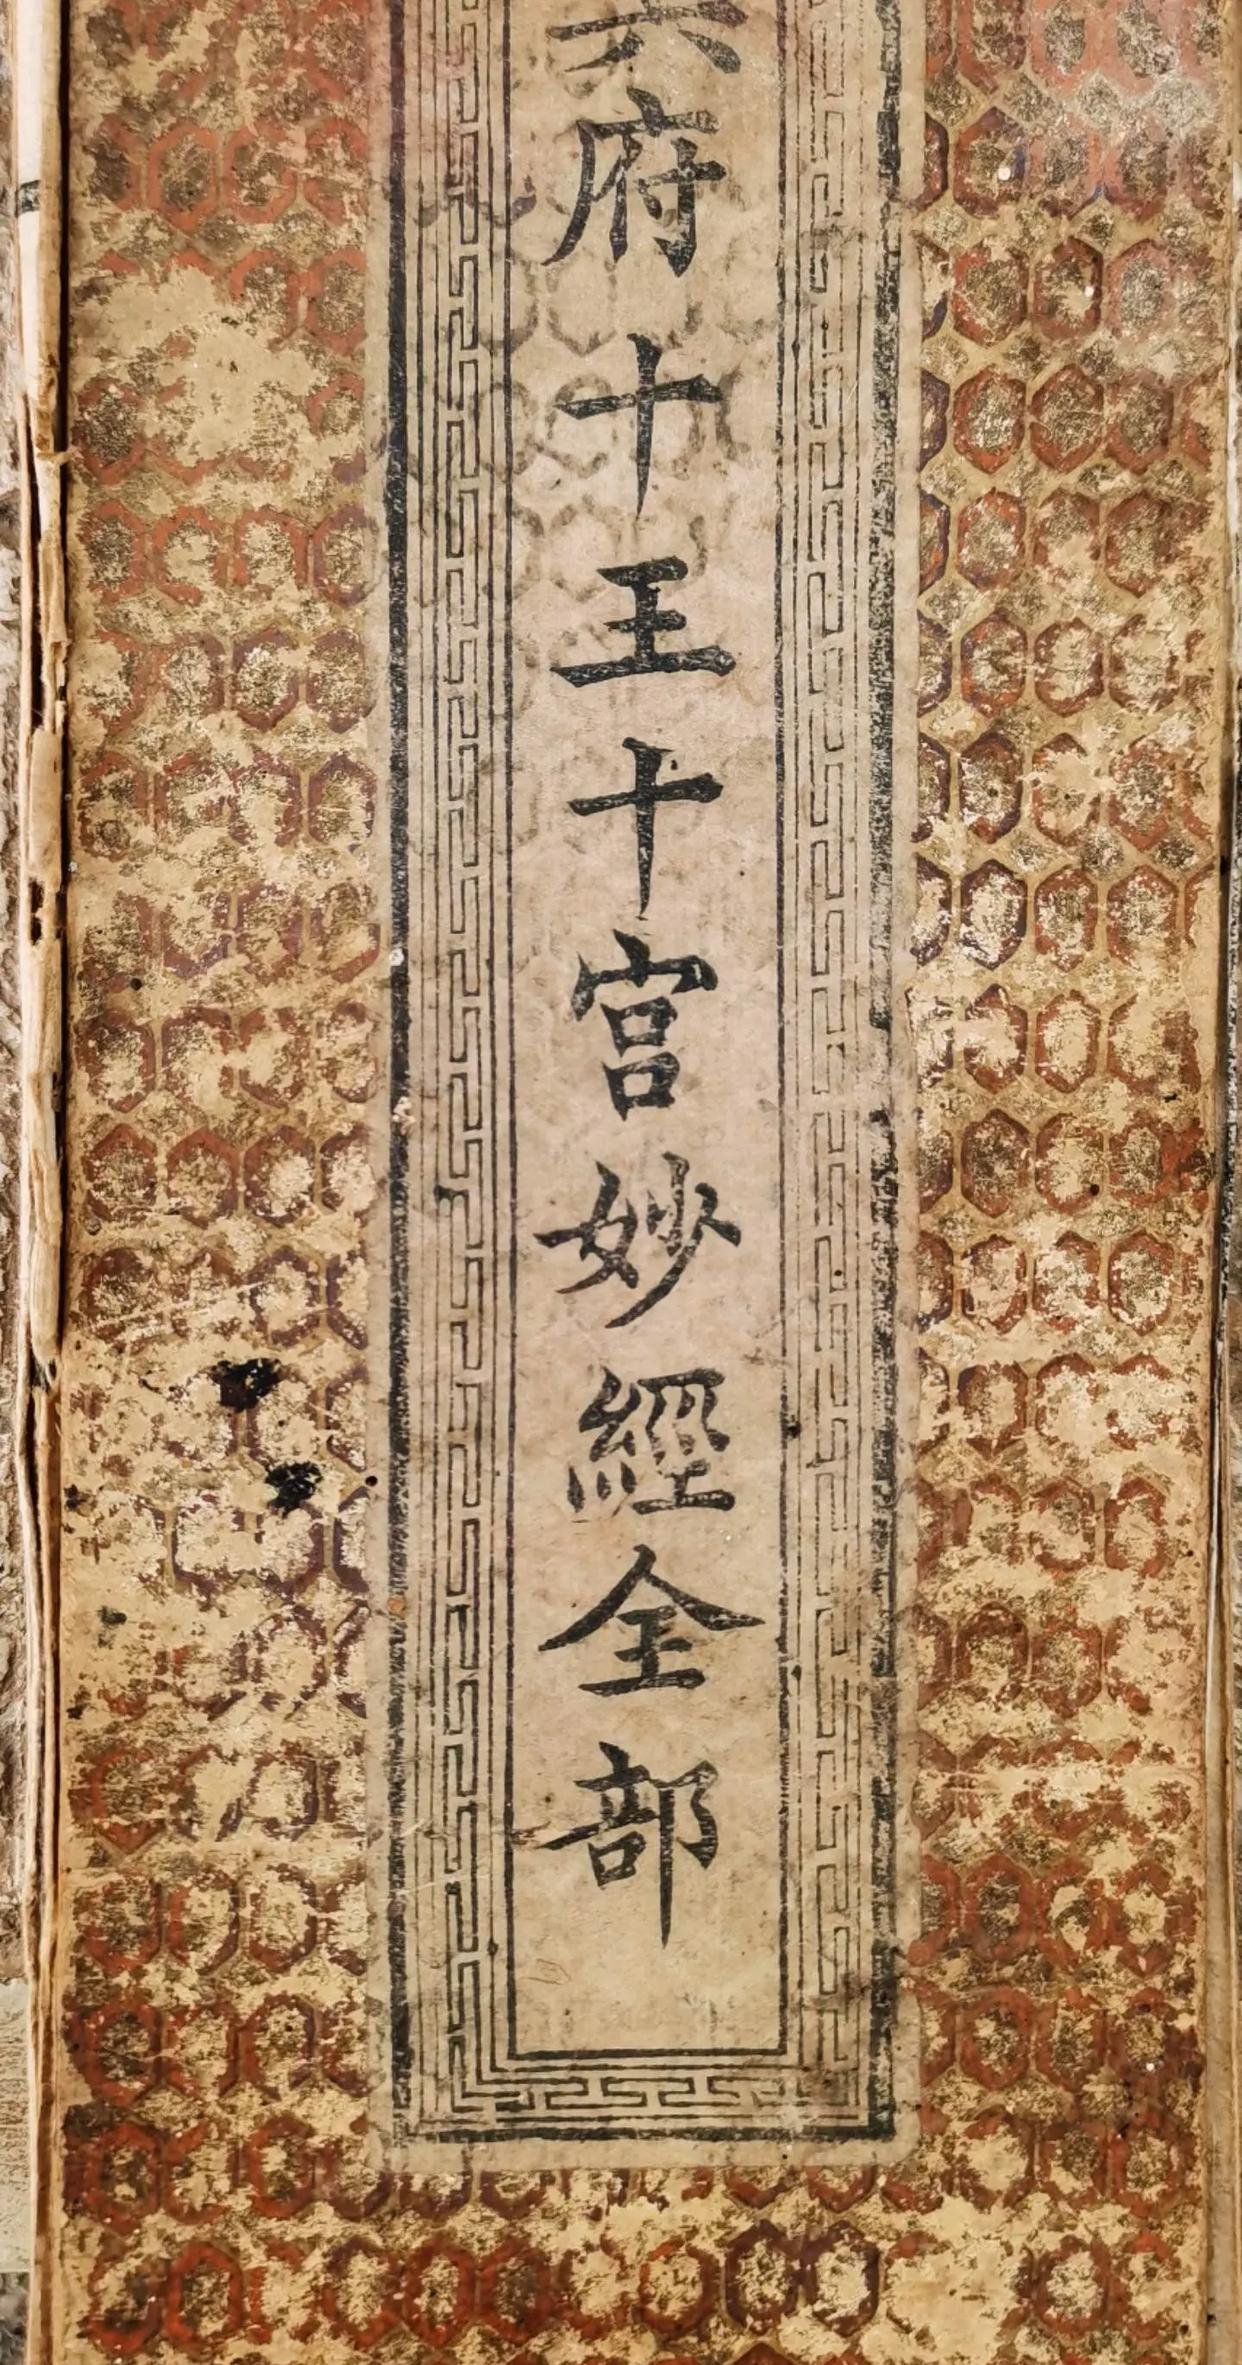 六府十王十宮妙經全部